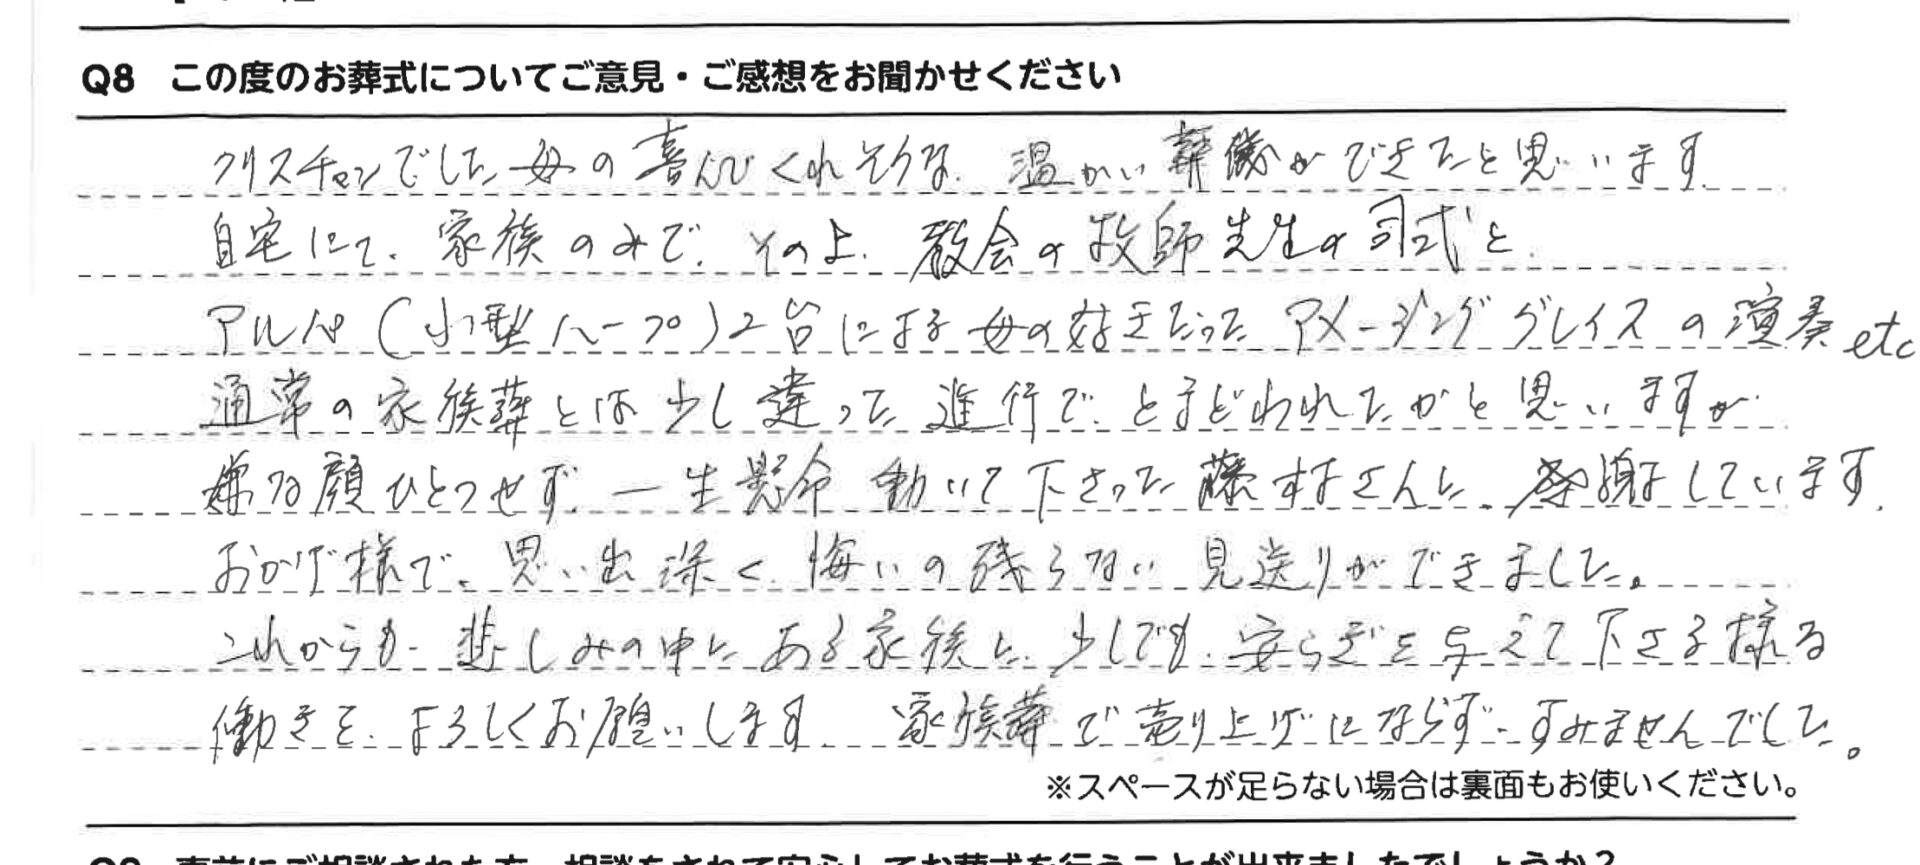 Q8 この度のお葬式についてご意見・ご感想をお聞かせください
クリスチャンでした母の喜んでくれそうな、温かい葬儀ができたと思います
自宅にて、家族のみで、その上、教会の牧師先生の司式と、
アルパ(小型ハープ)2台による母の好きだったアメージンググレイスの演奏etc
通常の家族葬とは少し違った進行で、とまどわれたかと思いますが
嫌な顔ひとつせず、一生懸命動いて下さった藤村さんに、感謝しています。
おかげ様で、思い出深く、悔いの残らない見送りができました。
これからも、悲しみの中にある家族に、少しでも、安らぎを与えて下さる様な
働きを、よろしくお願いします 家族葬で売り上げにならず、すみませんでした。
※スペースが足らない場合は裏面もお使いください。
Q9 事前にご相談された方、相談をされて安心してお葬式を行うことが出来ましたでしょうか?